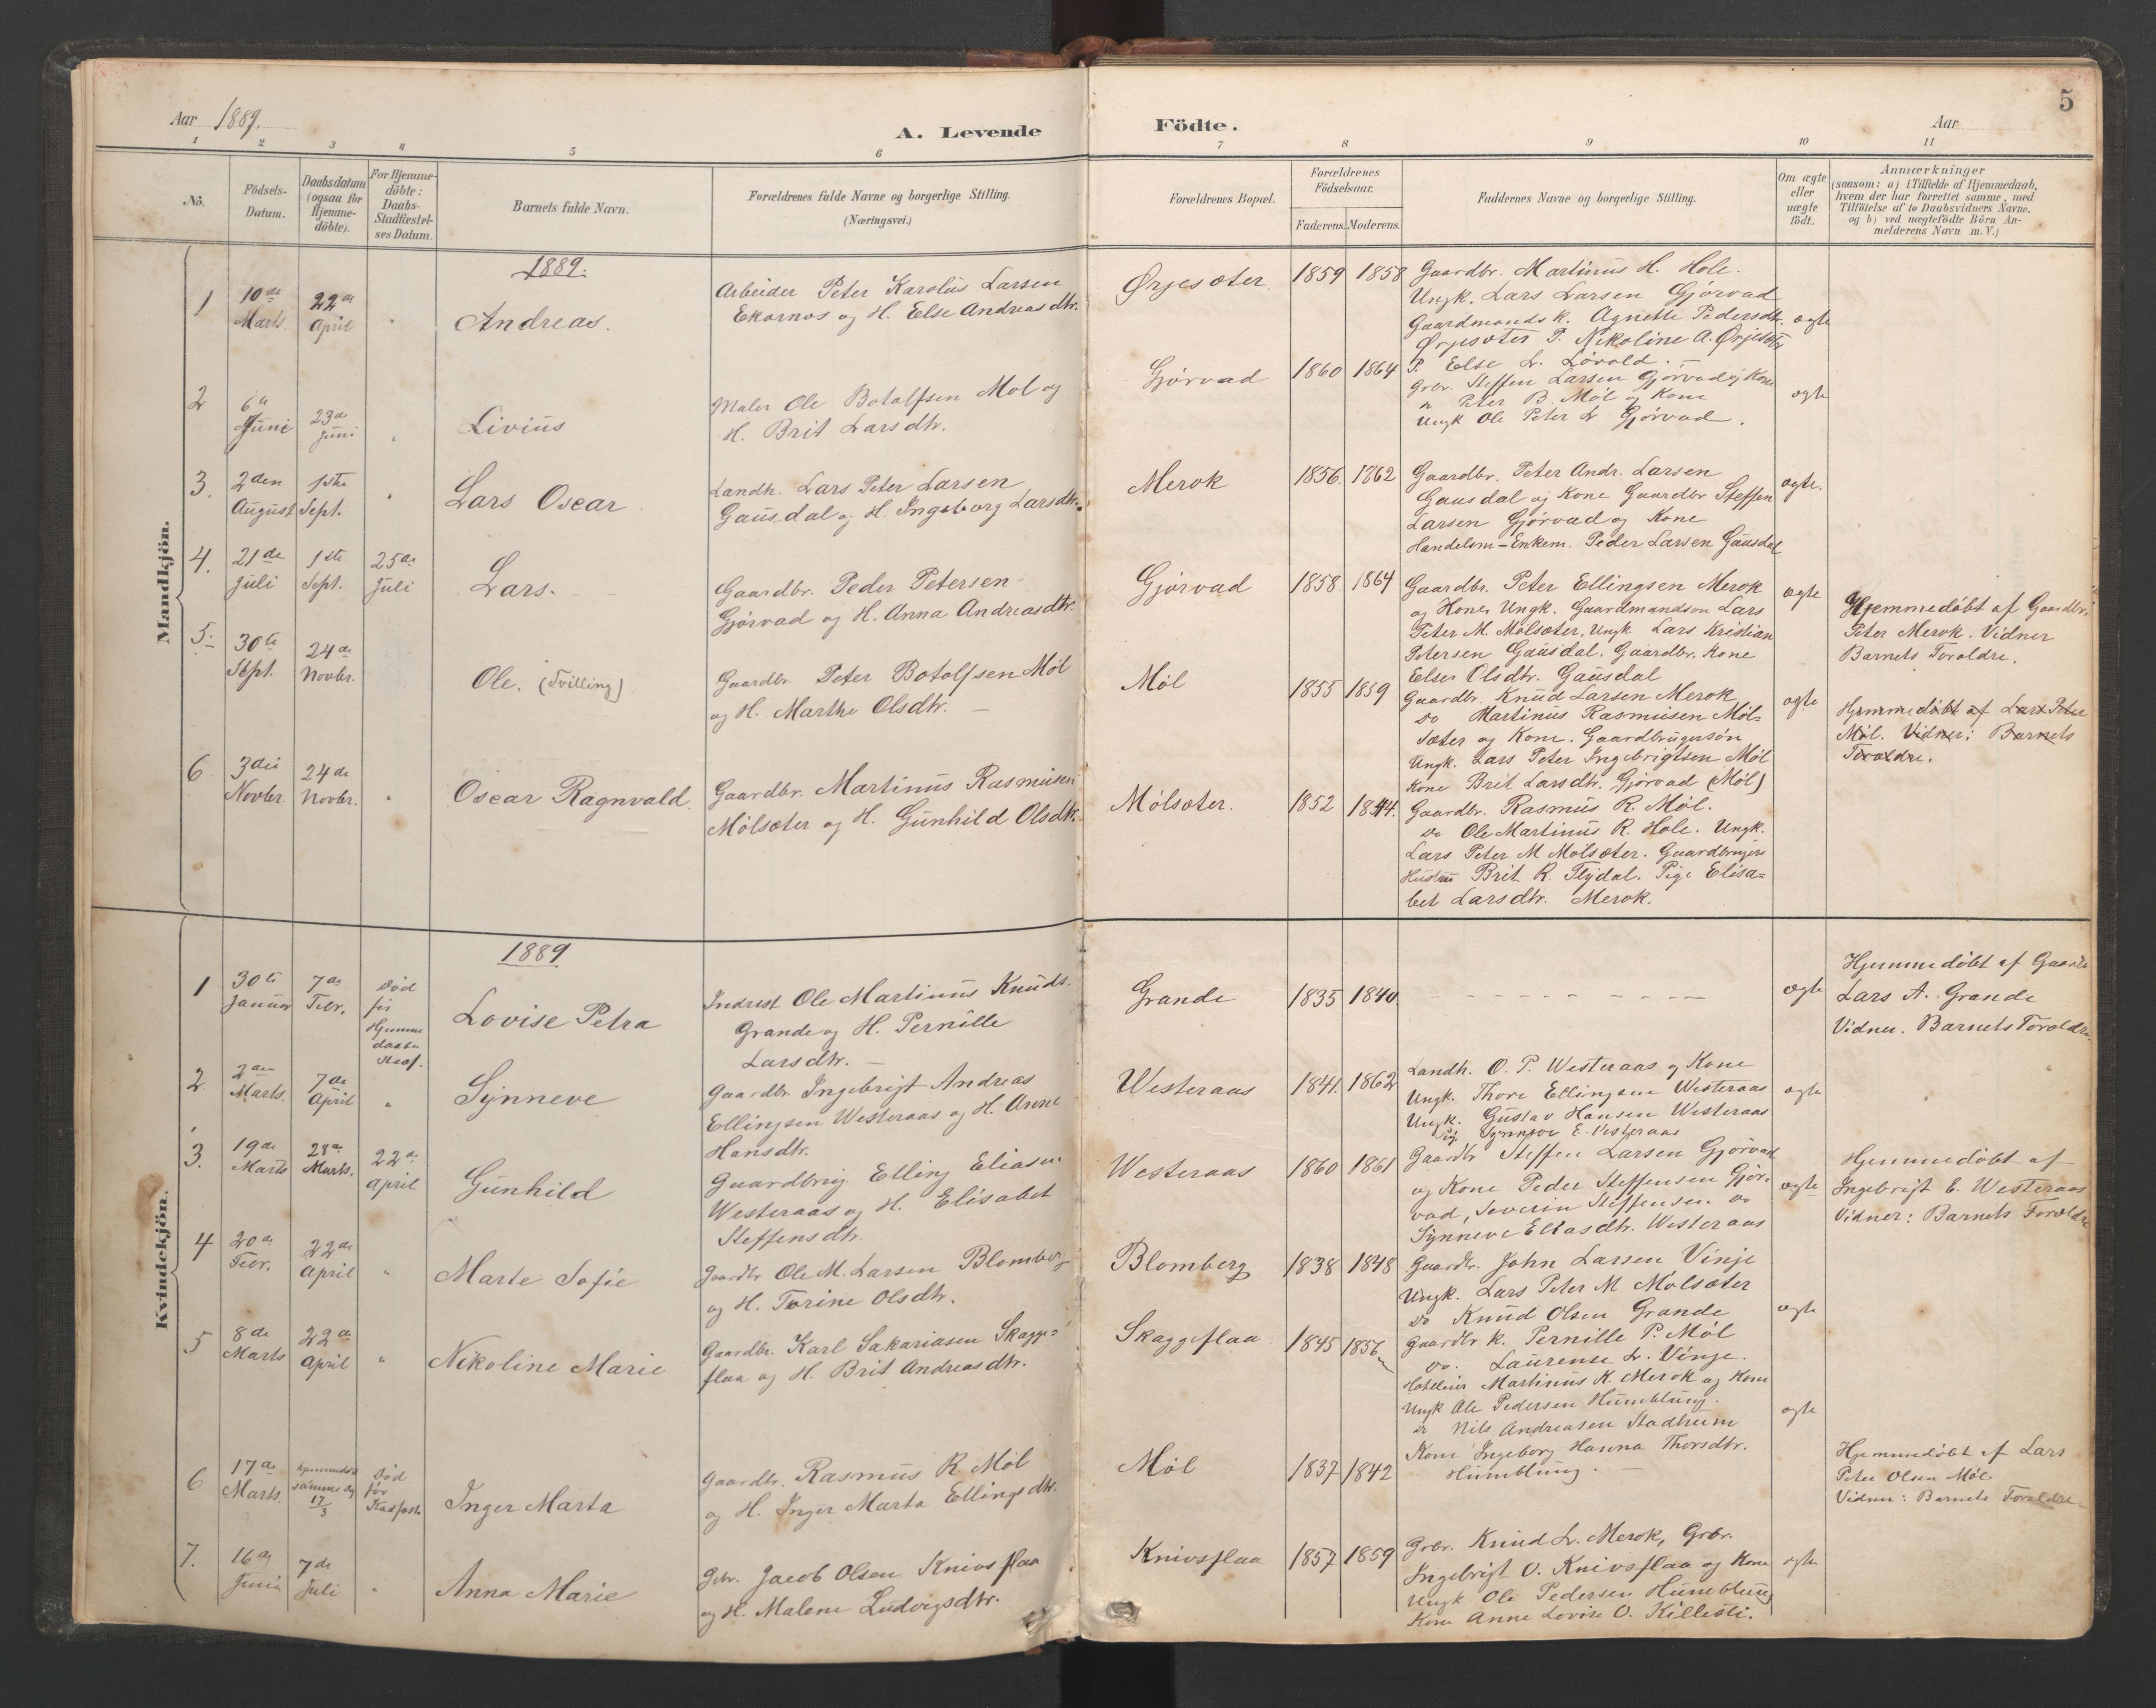 Aar 1889.
A. Levende Födte.
Aar
5
1 2 3 4 5 6 7 8 9 10 11
No.
Födsels-Datum.
Daabsdatum (ogsaa for Hjemme-döbte).
For Hjemme-döbte: Daabs-Stadfæstel-ses Datum.
Barnets fulde Navn.
Forældrenes fulde Navne og borgerlige Stilling.
(Næringsvei.)
Forældrenes Bopæl.
Forældrenes Födselsaar.
Faderens. Moderens.
Faddernes Navne og borgerlige Stilling.
Om ægte eller uægte födt.
Anmærkninger
(saasom: a) i Tilfælde af Hjemmedaab,
hvem der har forrettet samme, med
Tilföielse af to Daabsvidners Navne,
og b) ved uægtefödte Börn An-
melderens Navn m. V.)
Mandkjön.
1889.
1
10de Marts.
22de April
"
Andreas.
Arbeider Peter Karolus Larsen
Ekornæs og H. Else Andreasdtr.
Ørjesæter
1859 1858
Gaardbr. Martinus H. Hole.
Ungk. Lars Larsen Gjørvad
Gaardmands k. Agnette Pedersdtr.
Ørjesæter P. Nikoline A. Ørjesæter
P. Else L. Løvold. —
ægte
2
6te Juni
23de Juni
"
Livius
Maler Ole Botolfsen Mol og
H. Brit Larsdtr.
Gjørvad
1860 1864
Grbr. Steffen Larsen Gjørvad og Kone
Peter B. Møl og Kone
Ungk Ole Peter L Gjørvad.
ægte
3.
2den August
1ste Sept.
"
Lars Oscar
Landh. Lars Peter Larsen
Gausdal og H. Ingeborg Larsdtr.
Merok
1856. 1862
Gaardbr. Peter Andr. Larsen
Gausdal og Kone Gaardbr Steffen
Larsen Gjørvad og Kone
Handelsm-Enkem. Peder Larsen Gausdal
ægte.
4.
21de Juli
1ste Sept.
25de Juli
Lars.
Gaardbr. Peder Petersen
Gjørvad og H. Anna Andreasdtr.
Gjørvad
1858 1864
Gaardbr. Peter Ellingsen Merok
og Kone, Ungk. Gaardmandsøn Lars
Peter M. Mølsæter, Ungk Lars Kristian
Petersen Gausdal. Gaardbr. Kone
Else Olsdtr. Gausdal
ægte
Hjemmedøbt af Gaardbr.
Peter Merok. Vidner
Barnets Forældre.
5.
30te Sept.
24de Novbr.
Ole. (Tvilling)
Gaardbr. Peter Botolfsen Møl
og H. Marthe Olsdtr. —
Møl
1855 1859
Gaardbr. Knud Larsen Merok
Do Martinus Rasmusen Møl-
sæter og Kone. Gaardbrugersøn
Ungk. Lars Peter Ingebrigtsen Møl
Kone Brit Larsdtr. Gjørvad (Møl)
ægte
Hjemmedøbt af Lars Peter
Møl. Vidner: Barnets
Forældre.
6.
3die Novbr.
24de Novbr.
"
Oscar Ragnvald.
Gaardbr. Martinus Rasmusen
Mølsæter og H. Gunhild Olsdtr.
Mølsæter.
1852 1844.
Gaardbr. Rasmus R. Møl.
Do Ole Martinus R. Hole. Ungk.
Lars Peter M Mølsæter. Gaardbrugers
Hustru Brit R. Flydal. Pige Elisa=
bet Larsdtr. Merok.
Kvindekjön.
1889
1
30te Januar
7de Febr.
Død før Hjemme daabs Stadf.
Lovise Petra
Inderst Ole Martinus Knuds.
Grande og H. Pernille
Larsdtr. —
Grande
1835 1840
- - - - - - -
ægte
Hjemmedøbt af Gaardbr
Lars A. Grande
Vidner. Barnets Forældre
2.
2den Marts.
7de April
"
Synneve
Gaardbr. Ingebrigt Andreas
Ellingsen Westeraas og H. Anne
Hansdtr.
Westeraas
1841. 1862
Landh. O. P. Westeraas og Kone
Ungk. Thore Ellingsen Westeraas
Ungk. Gustav Hansen Westeraas
Pig. Synneve E. Westeraas
ægte
3.
19de Marts
28de Marts.
22de April
Gunhild
Gaardbrug. Elling Eliasen
Westeraas og H. Elisabet
Steffensdtr.
Westeraas
1860 1861
Gaardbr Steffen Larsen Gjørvad
og Kone Peder Steffensen Gjør-
vad, Severin Steffensen Do
Synneve Eliasdtr. Westeraas
ægte
Hjemmedøbt af
Ingebrigt E. Westeraas
Vidner: Barnets Forældre
4
20de Febr.
22de April
"
Marte Sofie
Gaardbr Ole M. Larsen Blomberg
og H. Torine Olsdtr.
Blomberg
1838 1848
Gaardbr. John Larsen Vinje
Ungk. Lars Peter M Mølsæter
Do Knud Olsen Grande
Gaardbr k. Pernille P. Møl
Do. Laurense L. Vinje.
ægte
5
8de Marts
22de April
"
Nikoline Marie
Gaardbr. Karl Sakariasen Skagge=
flaa og H. Brit Andreasdtr.
Skaggeflaa
1845 1856
Hoteleier Martinus K. Merok og Kone
Ungk Ole Pedersen Humblung.
Do Nils Andreasen Stadheim
Kone Ingeborg Hanna Thorsdtr.
Humblung. —
ægte
6
17de Marts.
Hjemmedøbt samme Dg 17/3
Død før
Inger Marta
Gaardbr. Rasmus R. Møl
og H. Inger Marta Ellingsdtr.
Møl
1837 1842
Hjemmedøbt af Lars
Peter Olsen Møl
Vidner: Barnets Forældre
7.
16de Juni
7de Juli
"
Anna Marie
Gbr. Jacob Olsen Knivsflaa
og H. Malene Ludvigsdtr.
Knivsflaa
1857 1859
Grbr. Knud L. Merok, Grbr.
Ingebrigt O. Knivsflaa og Kone
Ungk Ole Pedersen Humblung
Kone Anne Lovise O. Killesti.
ægte